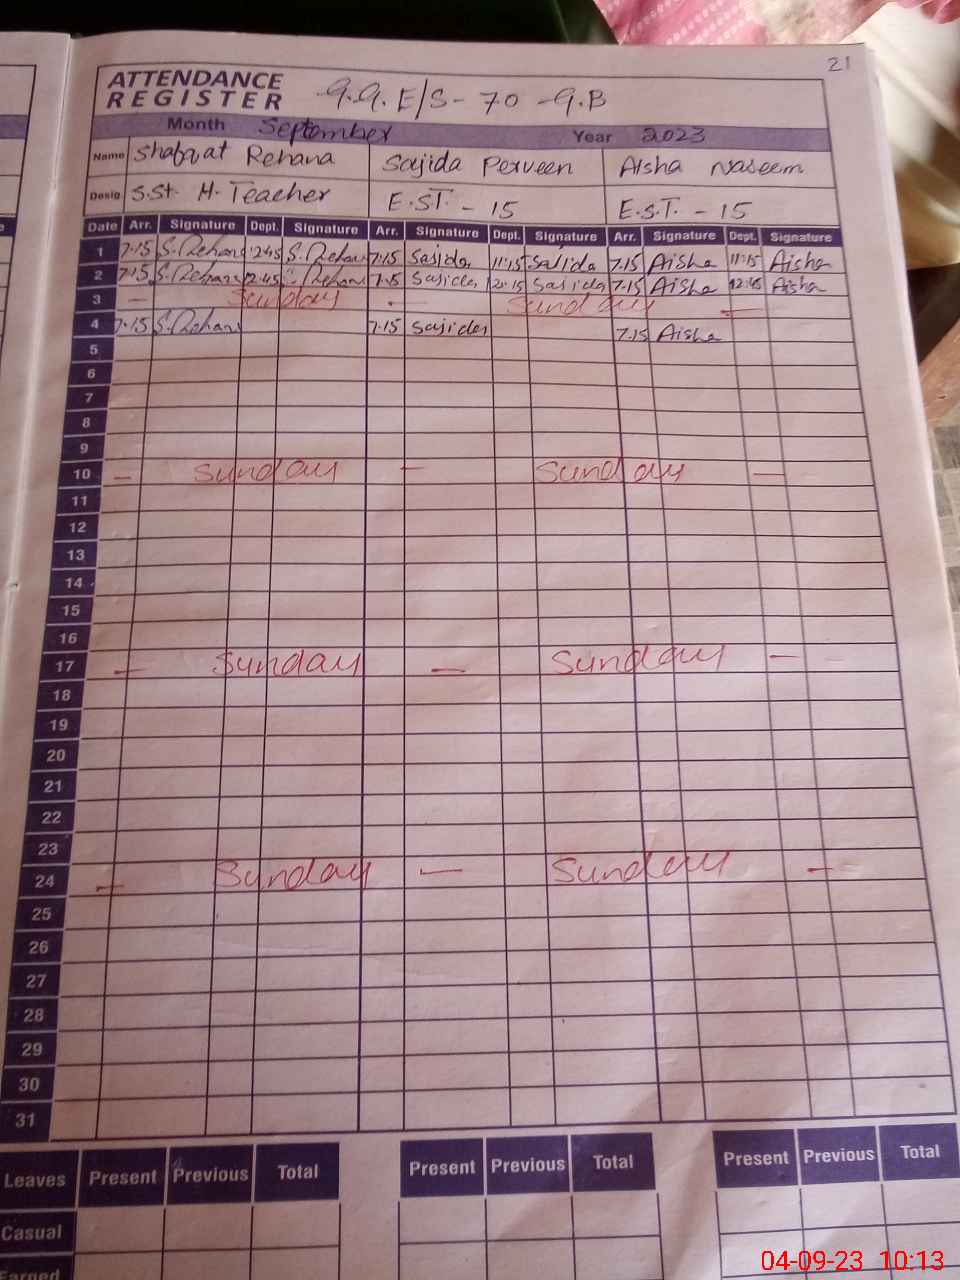 21
ATTENDANCE
REGISTER G.G.E/S-70-G.B
Month September Year 2023
Name Shafqat Rehana Sajida Perveen Aisha Naseem
Desig S.St. H.Teacher E.S.T. - 15 E.S.T. - 15
Date Arr. Signature Dept. Signature Arr. Signature Dept. Signature Arr. Signature Dept. Signature
1 7.15 S.Rehana 12.45 S.Rehana 7.15 Sajida 11:15 Sajida 7.15 Aisha 11:15 Aisha
2 7.15 S.Rehana 12.45 S.Rehana 7.15 Sajida 12.15 Sajida 7.15 Aisha 12:45 Aisha
3 - Sunday - Sunday -
4 7.15 S.Rehana 7.15 Sajida 7.15 Aisha
5
6
7
8
9
10 - Sunday - Sunday -
11
12
13
14
15
16
17 - Sunday - Sunday -
18
19
20
21
22
23
24 - Sunday - Sunday -
25
26
27
28
29
30
31
Leaves Present Previous Total Present Previous Total Present Previous Total
Casual
Earned
04-09-23 10:13